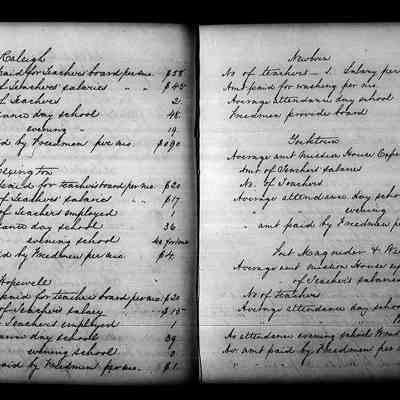 Raleigh
paid for Teachers board per mo. $58
of Teachers salaries " " $45
of Teachers 2
ance day school 48
evening " 19
d by Freedmen per mo.
Lexington
paid for teachers board per mo. $20
of Teachers salarie " " $17
of Teachers employed 1
ance day school 36
evening school
id by Freedmen per mo. $4
Hopewell
paid for teachers board per mo. $20
of Teachers salary " $15
Teachers employed 1
ance day school 39
evening school 0
paid by Freedmen per mo. $1
Newbern
No of teachers – 1. Salary per
Amt paid for washing per mo.
Average attendance day school
Freedmen provide board
Yorktown
Average amt mission House Expe
Amt of Teachers salaries
No. of Teachers
Average attendance day school
evening
" amt paid by Freedmen p
Fort Magruder & W
Average amt mission House exp
of Teachers salaries
No of teachers
Average attendance day school
Av attendance evening school
Av. amt paid by Freedmen per